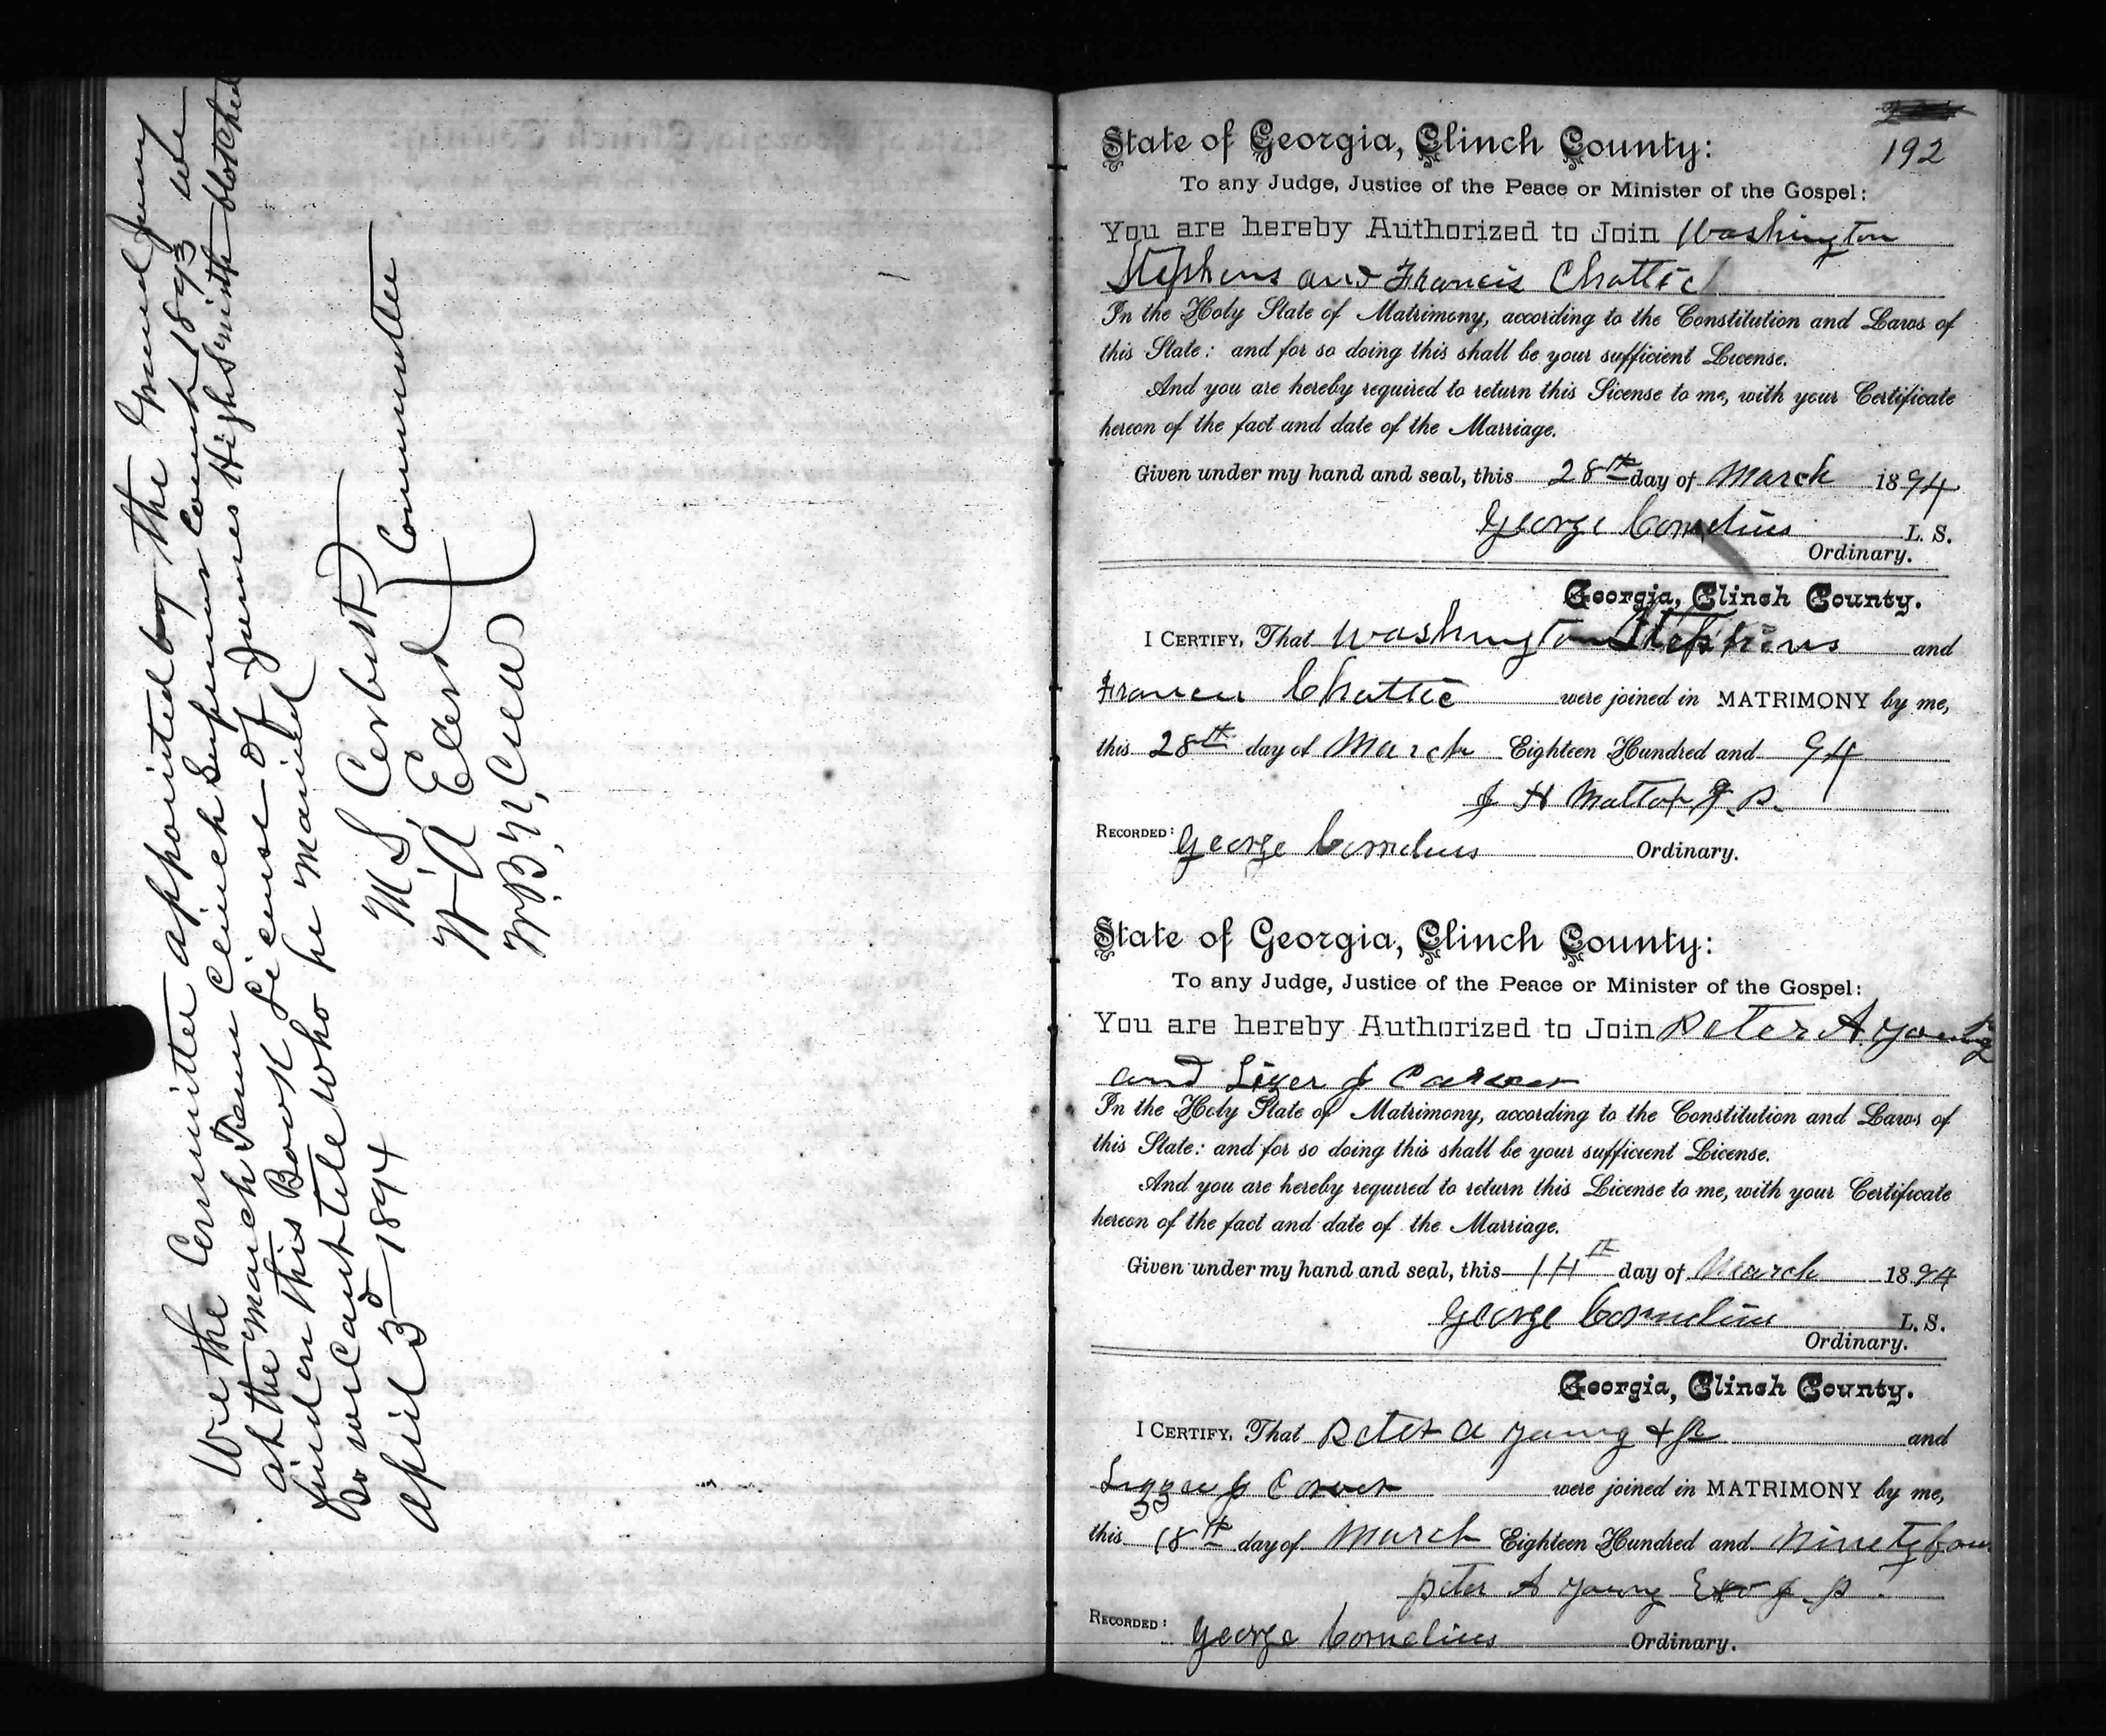 We the Committee appointed by the Grand Jury
at the March Term Clinch Superior Court 1893 we
find on this Book License of James Highsmith blotched
So we Cant tell who he married
April 3d 1894
M, S, Corbitt
W A, Eeard
W, B, N, Crews
Committee
192
State of Georgia, Clinch County:
To any Judge, Justice of the Peace or Minister of the Gospel:
You are hereby Authorized to Join Washington
Stephens and Francis Chattic
In the Holy State of Matrimony, according to the Constitution and Laws of
this State: and for so doing this shall be your sufficient License.
And you are hereby required to return this License to me, with your Certificate
hereon of the fact and date of the Marriage.
Given under my hand and seal, this 28th day of March 1894
George Cornelius L. S.
Ordinary.
Georgia, Clinch County.
I CERTIFY, That Washington Stephens and
Francis Chattic were joined in MATRIMONY by me,
this 28th day of March Eighteen Hundred and 94
J H Mattox J P.
RECORDED: George Cornelius Ordinary.
State of Georgia, Clinch County:
To any Judge, Justice of the Peace or Minister of the Gospel:
You are hereby Authorized to Join Peter A. Young
and Lizer J Carver
In the Holy State of Matrimony, according to the Constitution and Laws of
this State: and for so doing this shall be your sufficient License.
And you are hereby required to return this License to me, with your Certificate
hereon of the fact and date of the Marriage.
Given under my hand and seal, this 14th day of March 1894
George Cornelius L. S.
Ordinary.
Georgia, Clinch County.
I CERTIFY, That Peter A Young Jr and
Lizzer J Carver were joined in MATRIMONY by me,
this 18th day of March Eighteen Hundred and Ninetyfour
Peter A Young Exo J P
RECORDED: George Cornelius Ordinary.